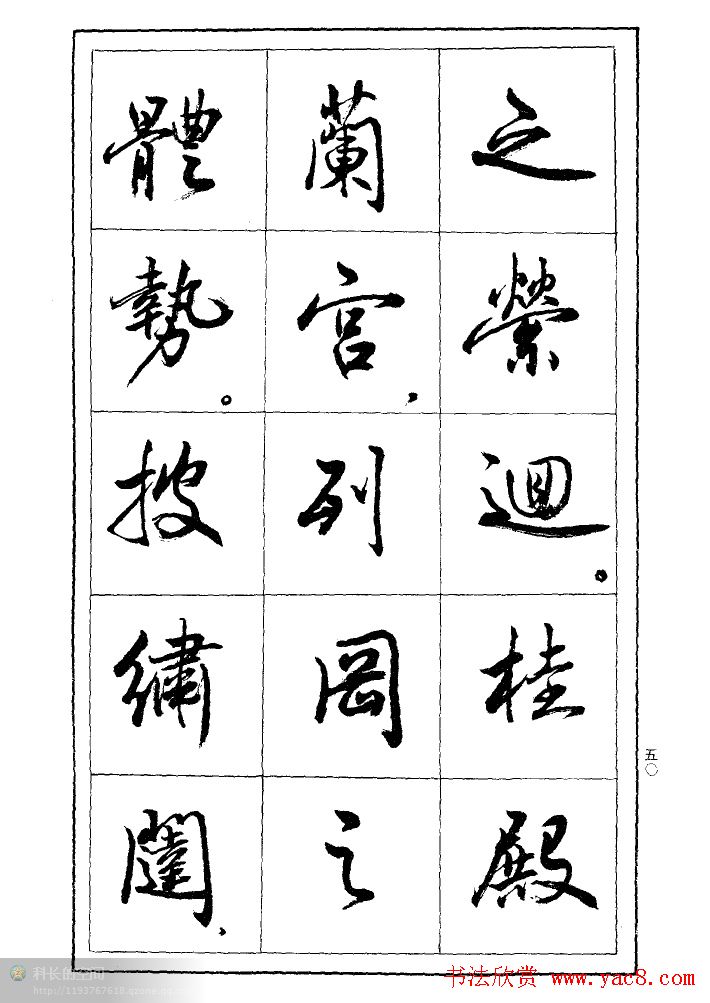 之縈迴。桂殿
蘭宮，列岡之
體勢。披繡闥，
五〇
科长的空间
http://1193767618.qzone.qq.com
书法欣赏 www.yac8.com